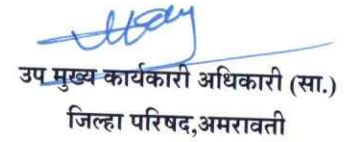 उप मुख्य कार्यकारी अधिकारी (सा.)
जिल्हा परिषद,अमरावती